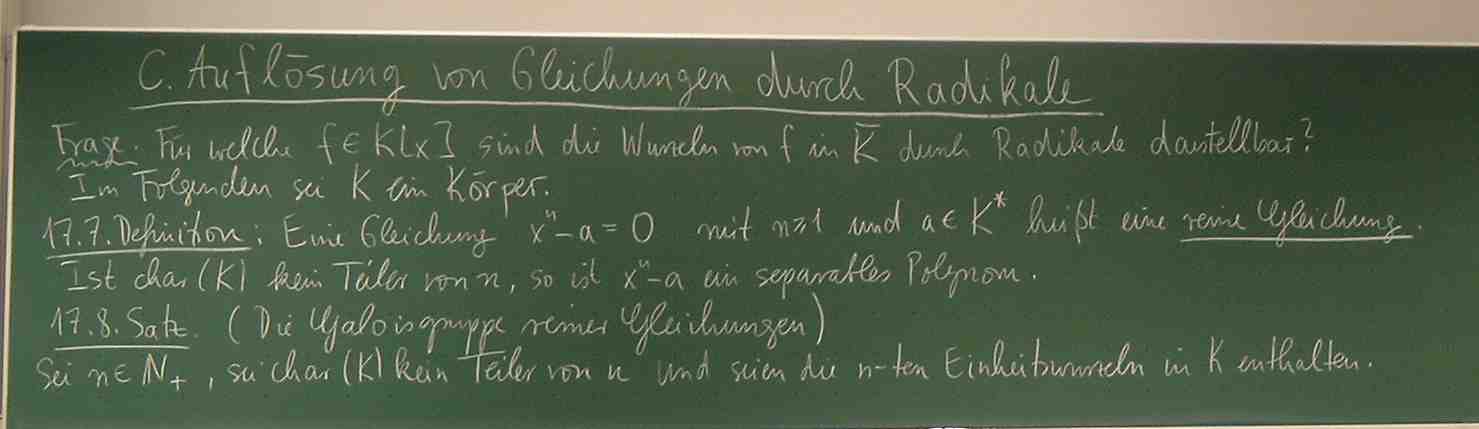 C. Auflösung von Gleichungen durch Radikale
Frage. Für welche f ∈ K[x] sind die Wurzeln von f in K̄ durch Radikale darstellbar?
Im Folgenden sei K ein Körper.
17.7. Definition: Eine Gleichung xⁿ-a=0 mit n≥1 und a ∈ K* heißt eine reine Gleichung.
Ist char(K) kein Teiler von n, so ist xⁿ-a ein separables Polynom.
17.8. Satz. (Die Galoisgruppe reiner Gleichungen)
Sei n ∈ ℕ₊, sei char(K) kein Teiler von n und seien die n-ten Einheitswurzeln in K enthalten.